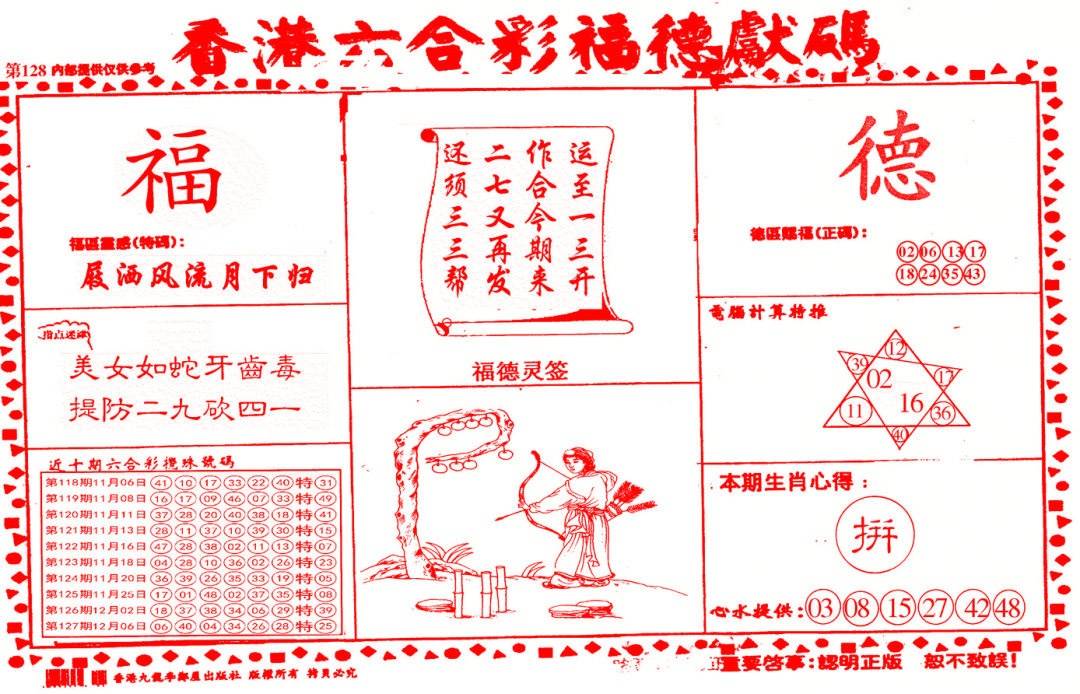 香港六合彩福德獻碼
第128 内部提供仅供参考
福
福區靈感(特碼):
屐洒风流月下归
指点迷津
美女如蛇牙齒毒
提防二九砍四一
近十期六合彩攪珠號碼
第118期11月06日 41 10 17 33 22 40 特 31
第119期11月08日 16 17 09 46 07 33 特 49
第120期11月11日 37 28 20 40 38 18 特 41
第121期11月13日 28 11 37 10 39 30 特 15
第122期11月16日 47 28 38 02 11 13 特 07
第123期11月18日 04 28 10 36 02 26 特 23
第124期11月20日 36 39 26 35 33 19 特 05
第125期11月25日 17 01 48 02 37 35 特 08
第126期12月02日 18 37 38 34 06 29 特 39
第127期12月06日 06 40 04 34 26 28 特 25
运至一三开
作合今期来
二七又再发
还须三三帮
福德灵签
德
德區賜福(正碼):
02 06 13 17
18 24 35 43
電腦計算特推
12
39 02 17
11 16 36
40
本期生肖心得:
拼
心水提供: 03 08 15 27 42 48
重要啓事:認明正版 恕不致誤!
香港九龍李鄭屋出版社 版權所有 拷貝必究